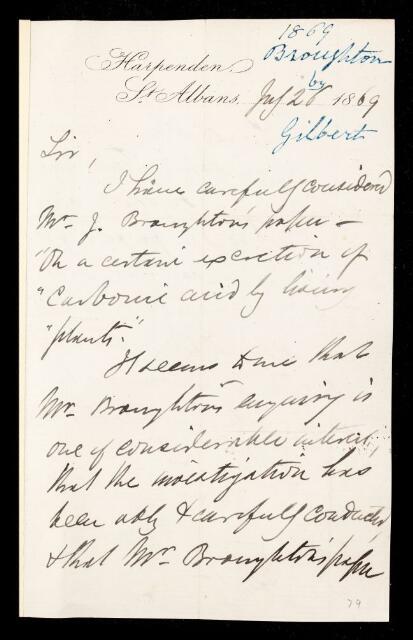 1869
Broughton
by
Gilbert
Harpenden.
St. Albans. July 26 1869
Sir,
I have carefully considered
Mr. J. Broughton's paper –
"On a certain excretion of
"Carbonic acid by living
"plants."
It seems to me that
Mr. Broughton's enquiry is
one of considerable interest,
that the investigation has
been ably & carefully conducted,
& that Mr. Broughton's paper
79